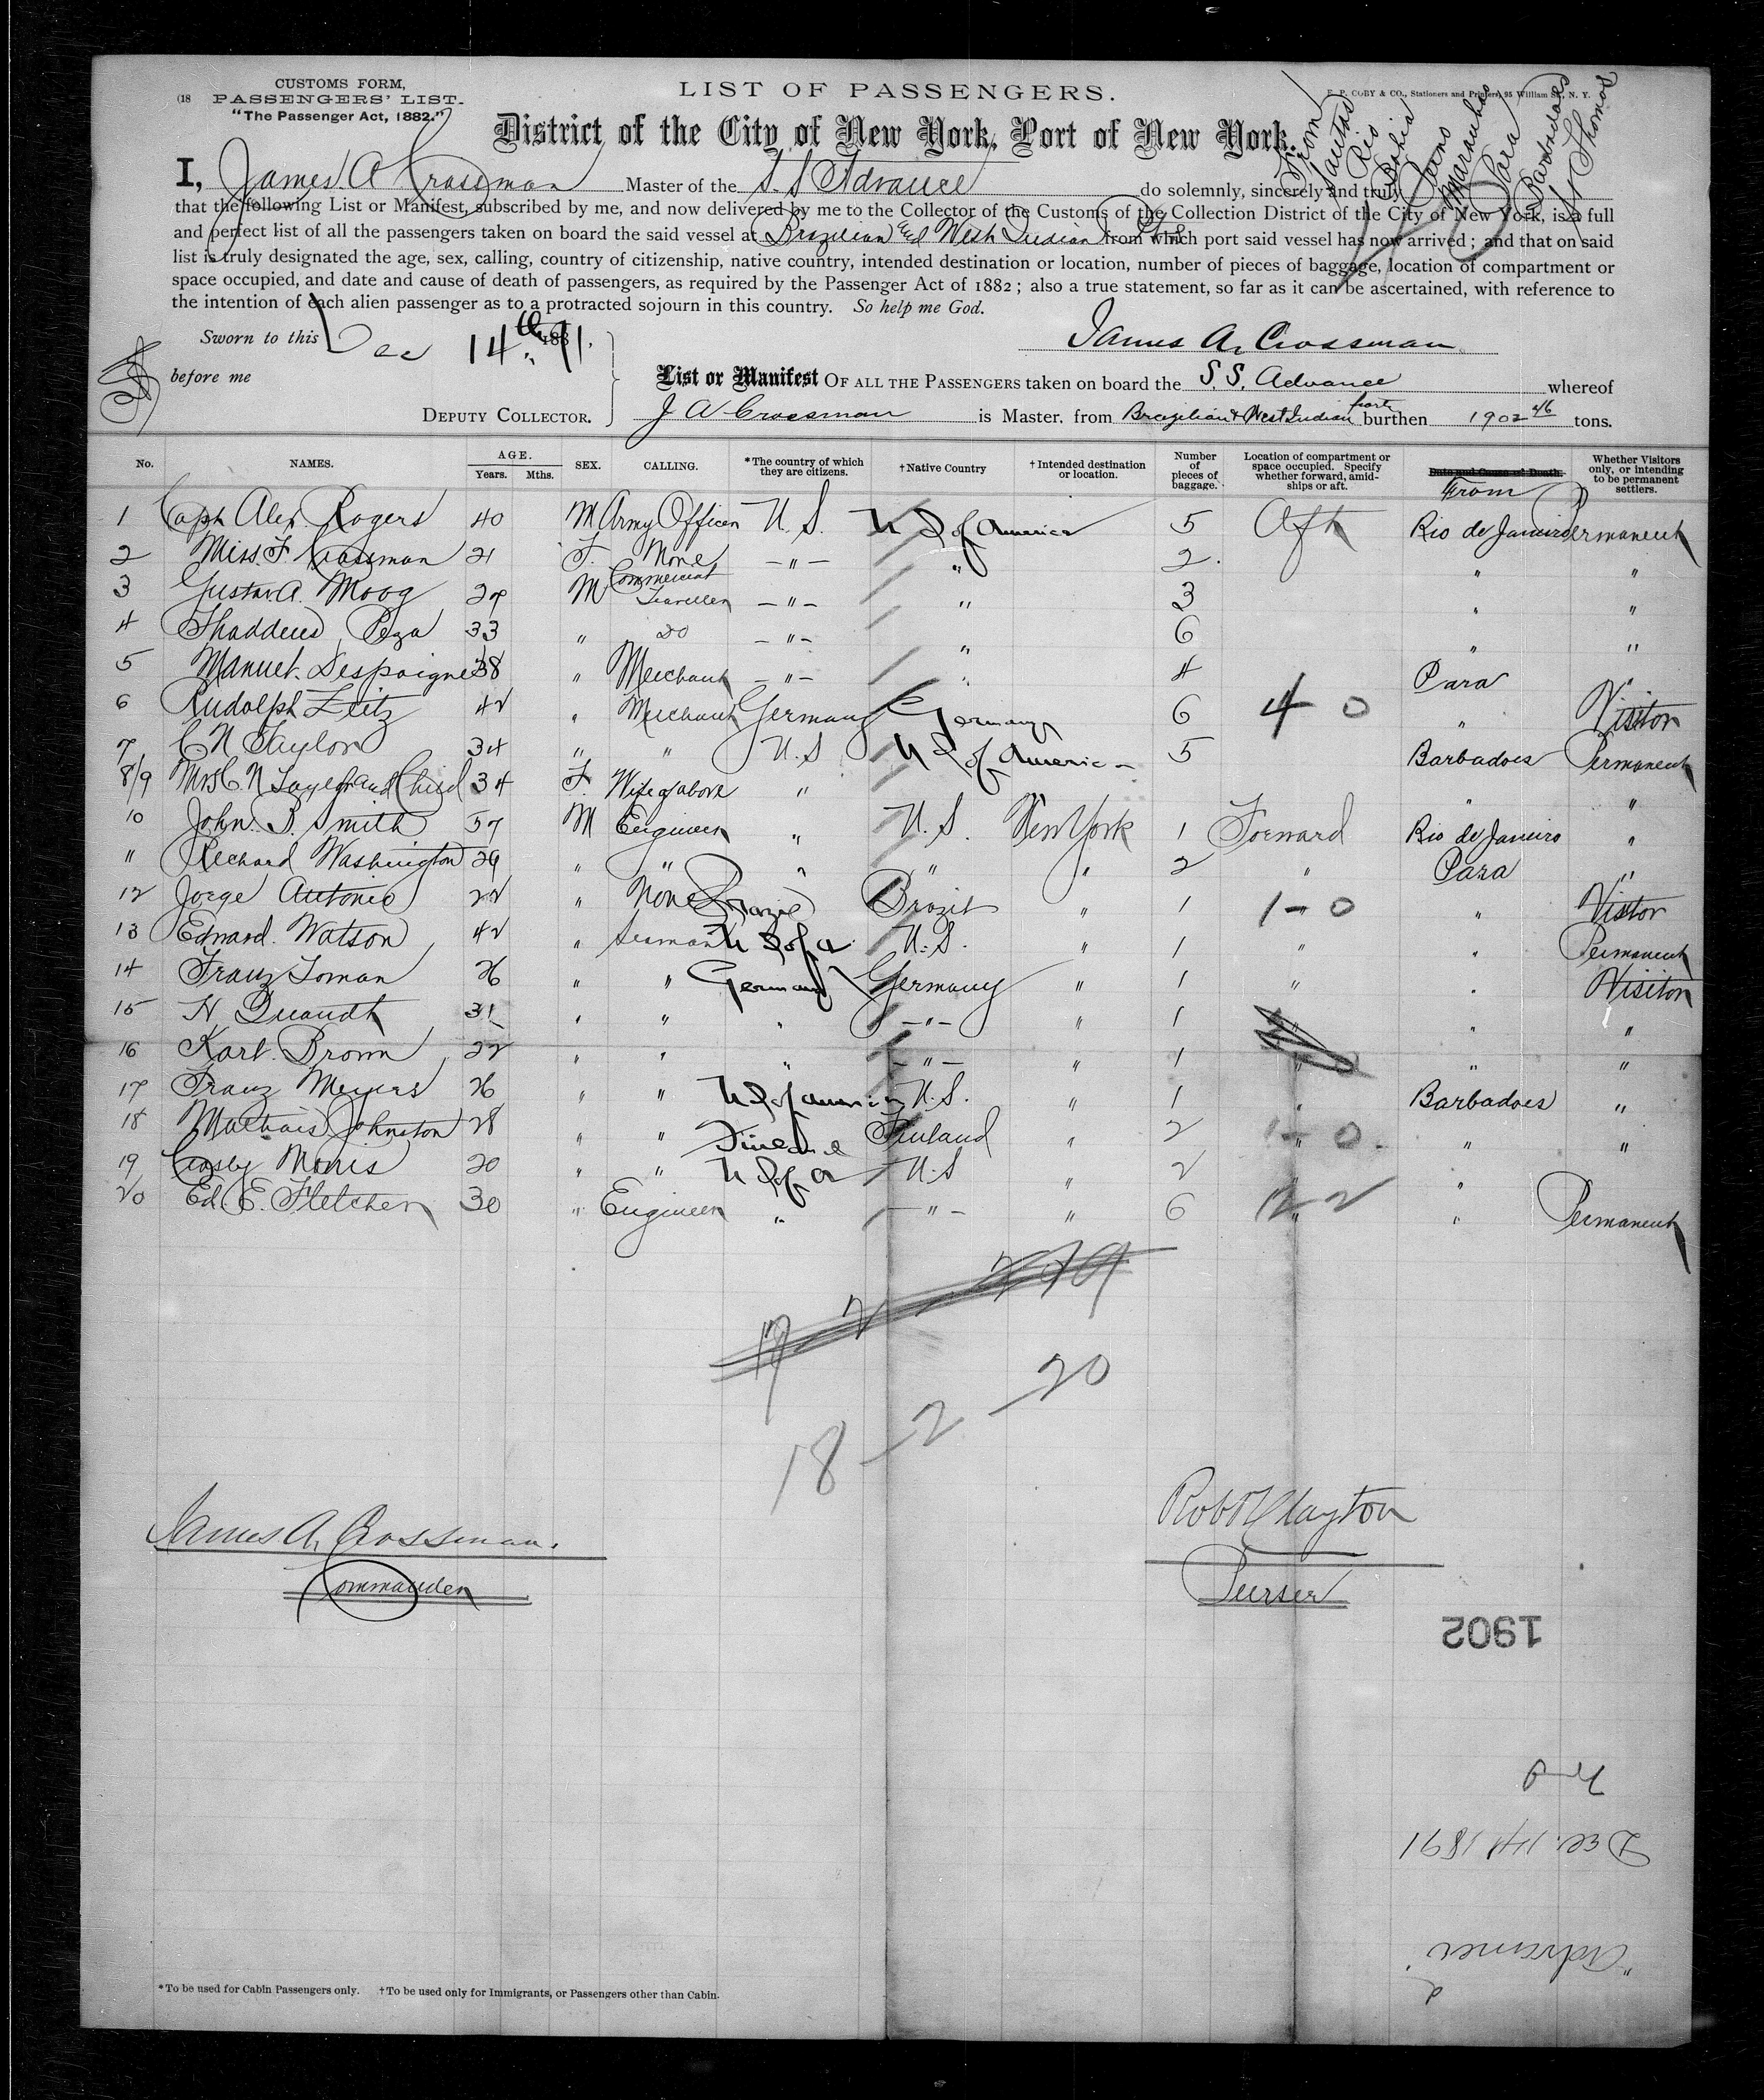 CUSTOMS FORM,
(18 PASSENGERS' LIST.
"The Passenger Act, 1882."
LIST OF PASSENGERS.
E. P. COBY & CO., Stationers and Printers, 95 William St., N. Y.
District of the City of New York, Port of New York.
From
Santos
Rio
Bahia
Maranham
Para
Barbadoes
St Thomas
I, James A Crossman Master of the S.S Advance do solemnly, sincerely and truly
that the following List or Manifest, subscribed by me, and now delivered by me to the Collector of the Customs of the Collection District of the City of New York, is a full
and perfect list of all the passengers taken on board the said vessel at Brazilian and West Indian Pts from which port said vessel has now arrived; and that on said
list is truly designated the age, sex, calling, country of citizenship, native country, intended destination or location, number of pieces of baggage, location of compartment or
space occupied, and date and cause of death of passengers, as required by the Passenger Act of 1882; also a true statement, so far as it can be ascertained, with reference to
the intention of each alien passenger as to a protracted sojourn in this country. So help me God.
Sworn to this Dec 14th 1891.
James A. Crossman
before me
List or Manifest OF ALL THE PASSENGERS taken on board the S.S. Advance whereof
DEPUTY COLLECTOR.
J A Crossman is Master, from Brazilian & West Indian ports burthen 1902 46 tons.
No. NAMES. AGE. Years. Mths. SEX. CALLING. *The country of which they are citizens. †Native Country †Intended destination or location. Number of pieces of baggage. Location of compartment or space occupied. Specify whether forward, amidships or aft. Date and Cause of Death. From Whether Visitors only, or intending to be permanent settlers.
1 Capt Alex. Rogers 40 M Army Officer U.S. U S of America 5 Aft Rio de Janeiro Permanent
2 Miss. F. Crossman 21 F. None -"- " 2. " "
3 Gustav. A. Moog 29 M Commercial Traveller -"- " 3 " "
4 Thaddeus Peza 33 " Do -"- " 6 " "
5 Manuel Despaigne 38 " Merchant -"- " 4 Para "
6 Rudolph Zeitz 42 " Merchant Germany Germany 6 4 0 " Visitor
7 C N Taylor 34 " " U.S U S of America 5 Barbadoes Permanent
8/9 Mrs C. N Taylor and Child 34 F. Wife of above " " "
10 John. B. Smith 57 M Engineer " U.S. New York 1 Forward Rio de Janeiro "
" Richard Washington 29 " " " " " 2 " Para "
12 Jorge Antonio 22 " None Brazil Brazil " 1 1-0 " Visitor
13 Edward. Watson 42 " Seaman U S of A. U.S. " 1 " " Permanent
14 Franz Loman 26 " " Germany Germany " 1 " " Visitor
15 H Quandt 31 " " " -"- " 1 " "
16 Karl. Brown 22 " " " -"- " 1 " " "
17 Franz Meyers 26 " " U S of America U.S. " 1 " Barbadoes "
18 Mathais Johnston 28 " " Finland Finland " 2 1-0. " "
19 Crosby Morris 20 " " U S of A U.S " 2 "
20 Ed. E. Fletcher 30 " Engineer " -"- " 6 12 2 " Permanent
18-2-20
James A. Crossman.
Commander
Robt Clayton
Purser
1902
Dec. 14 1891
"Advance"
*To be used for Cabin Passengers only. †To be used only for Immigrants, or Passengers other than Cabin.